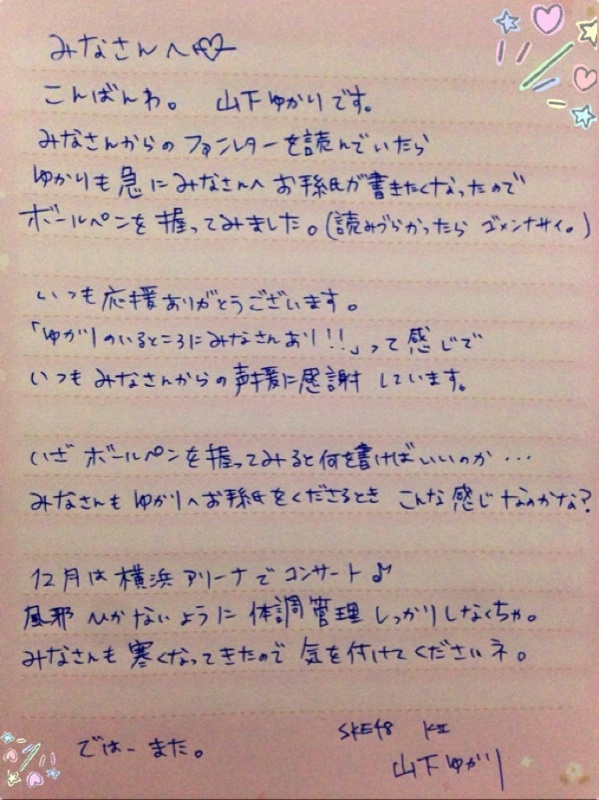 みなさんへ♡
こんばんわ。 山下ゆかりです。
みなさんからのファンレターを読んでいたら
ゆかりも急にみなさんへお手紙が書きたくなったので
ボールペンを握ってみました。(読みづらかったらゴメンナサイ。)
いつも応援ありがとうございます。
「ゆかりのいるところにみなさんあり!!」って感じで
いつもみなさんからの声援に感謝しています。
いざボールペンを握ってみると何を書けばいいのか・・・
みなさんもゆかりへお手紙をくださるとき こんな感じなのかな?
12月は横浜アリーナでコンサート♪
風邪ひかないように体調管理しっかりしなくちゃ。
みなさんも寒くなってきたので気を付けてくださいネ。
ではーまた。
SKE48 KⅡ
山下ゆかり